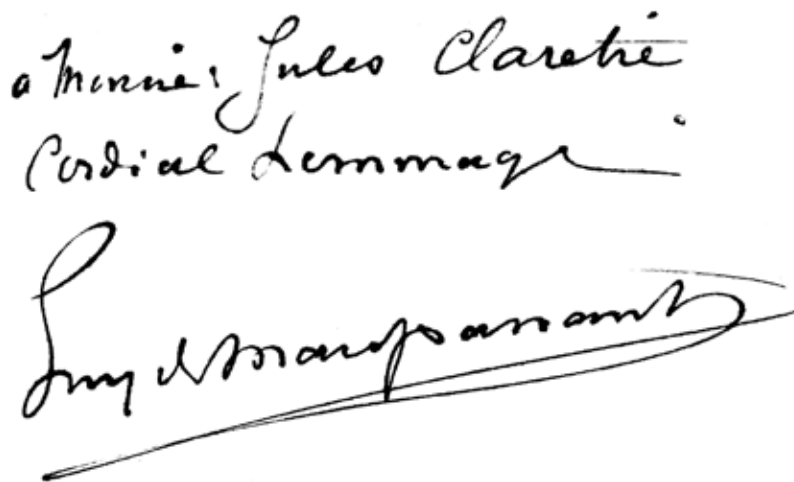 a Monsieur Jules Claretie
Cordial hommage
Guy de Maupassant